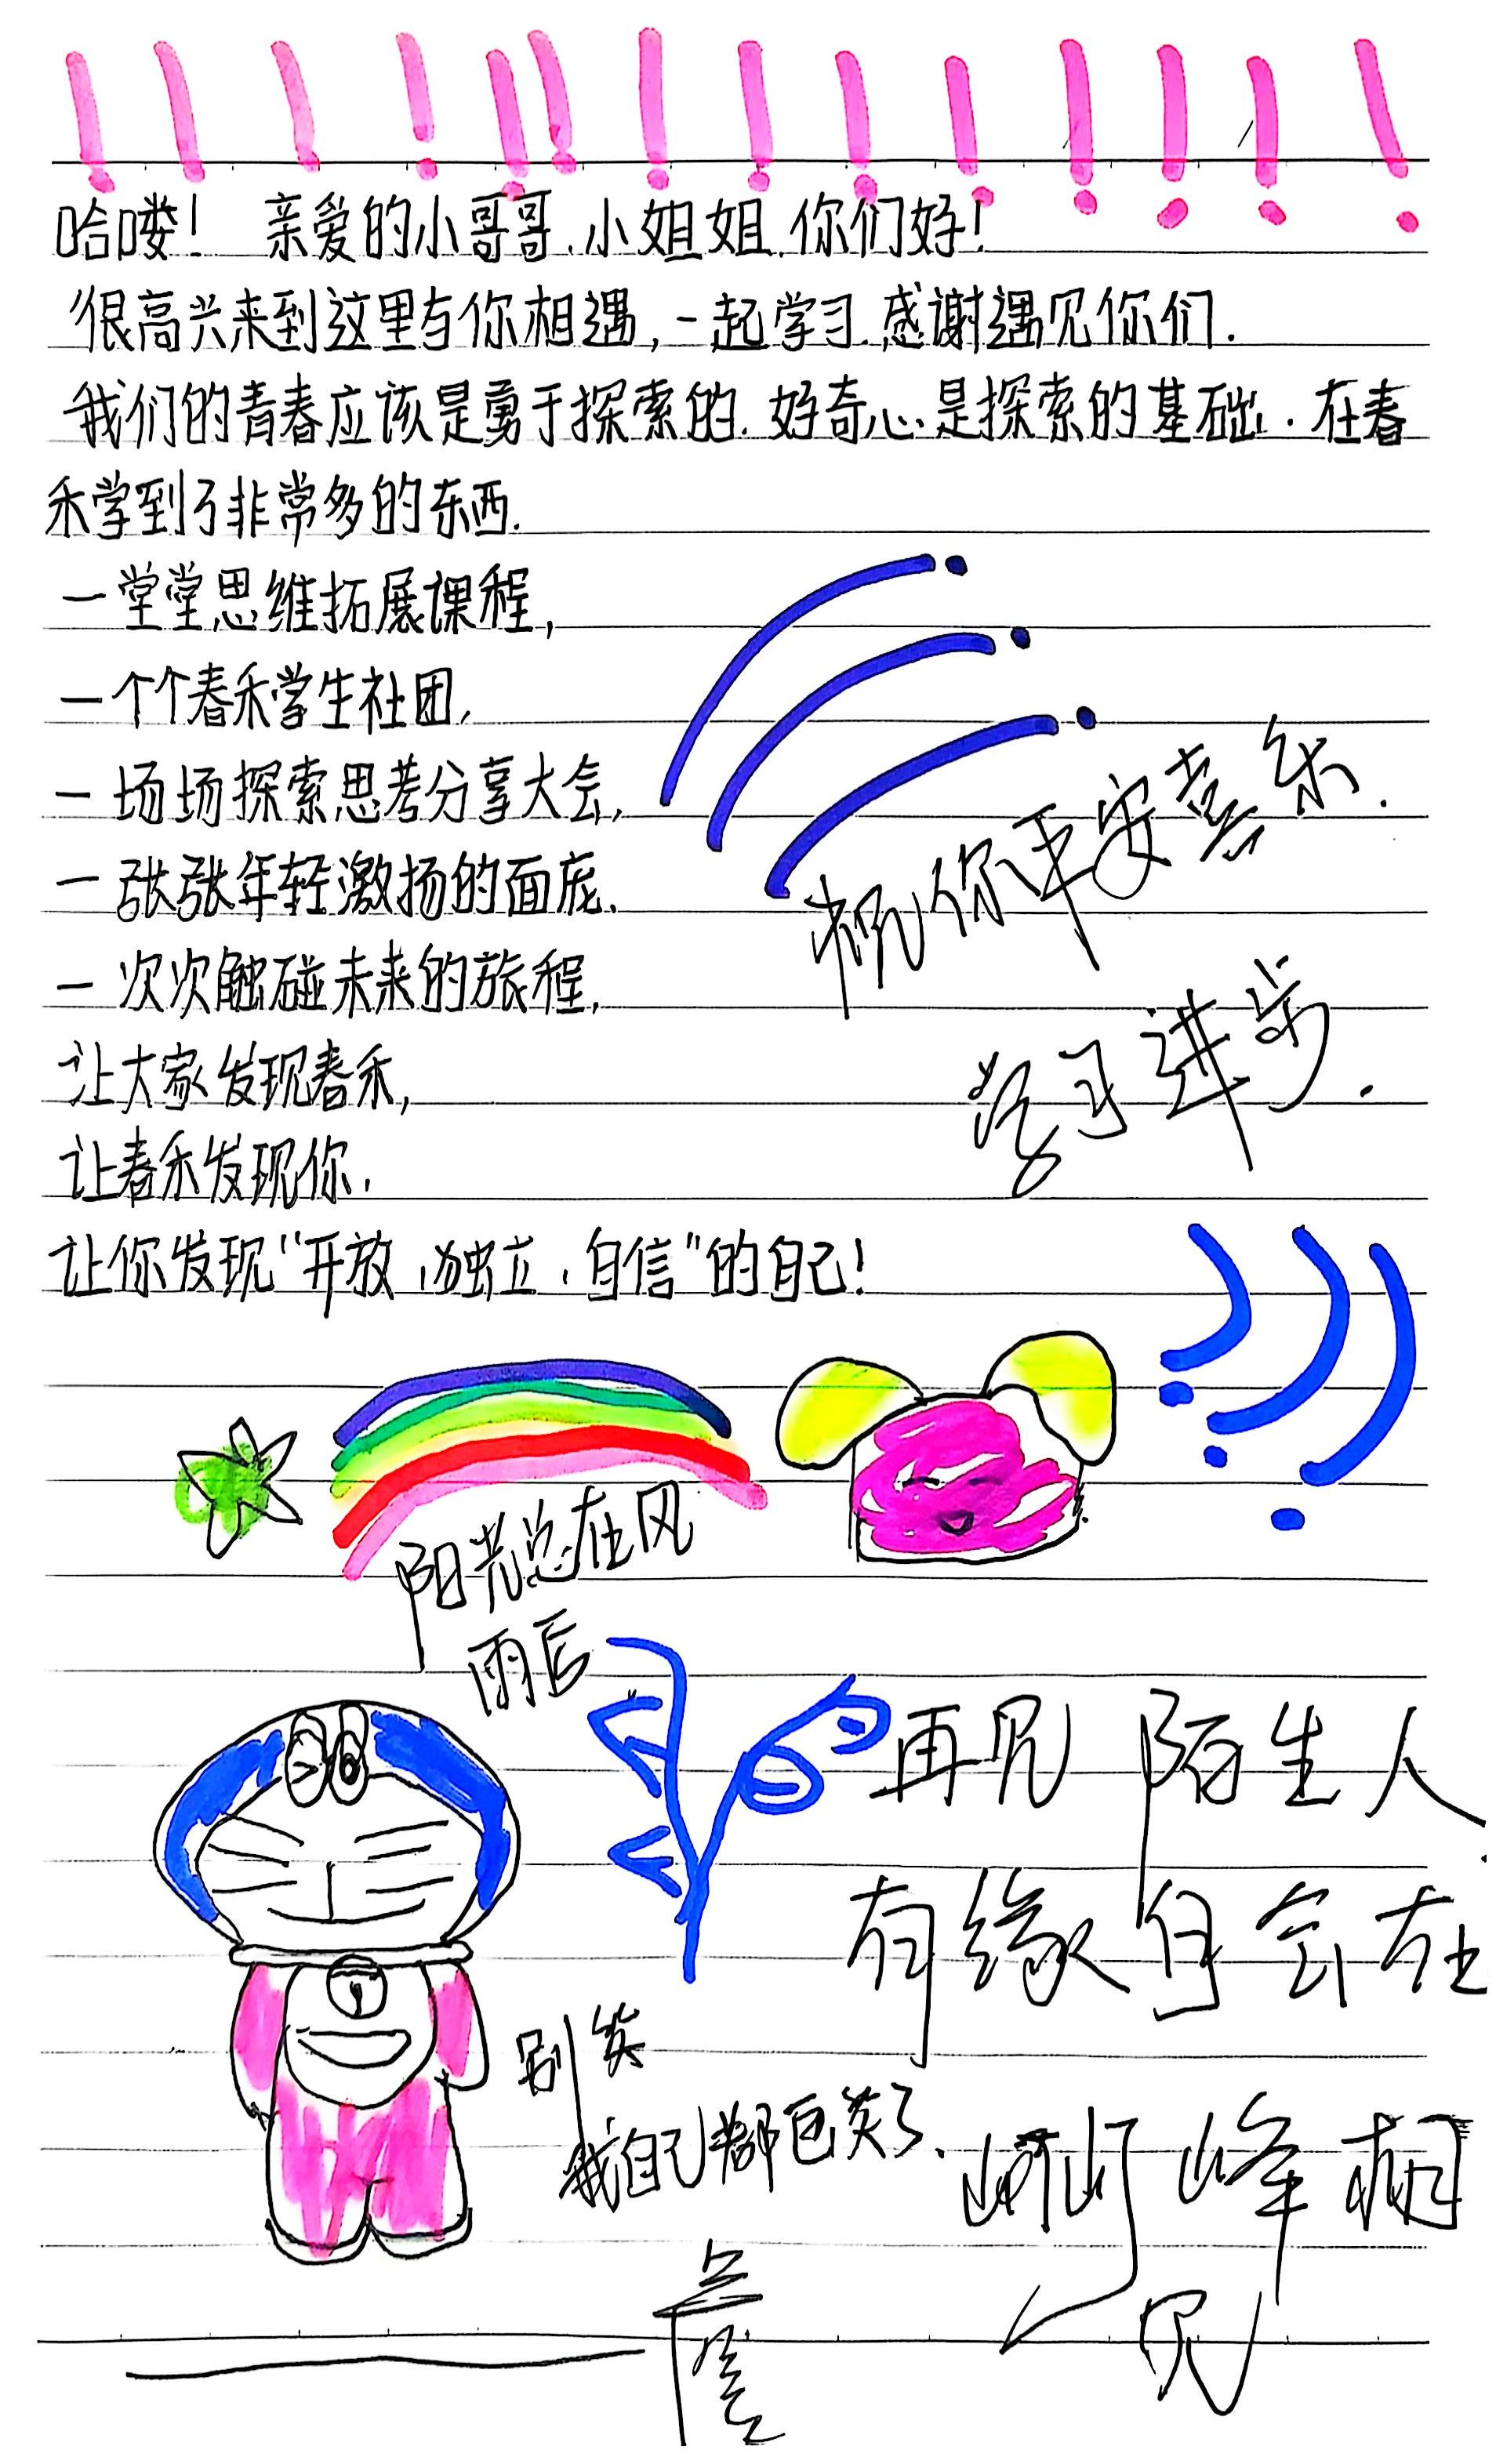 哈喽！ 亲爱的小哥哥、小姐姐、你们好！
很高兴来到这里与你相遇，一起学习，感谢遇见你们.
我们的青春应该是勇于探索的.好奇心是探索的基础.在春
禾学到了非常多的东西.
一堂堂思维拓展课程，
一个个春禾学生社团，
一场场探索思考分享大会，
一张张年轻激扬的面庞.
一次次触碰未来的旅程，
让大家发现春禾，
让春禾发现你，
让你发现“开放、独立、自信”的自己！
祝你平安喜乐.
学习进步.
阳光总在风
雨后
再见 陌生人.
有缘自会在
别笑
我自己都已笑了.
山峰相
见